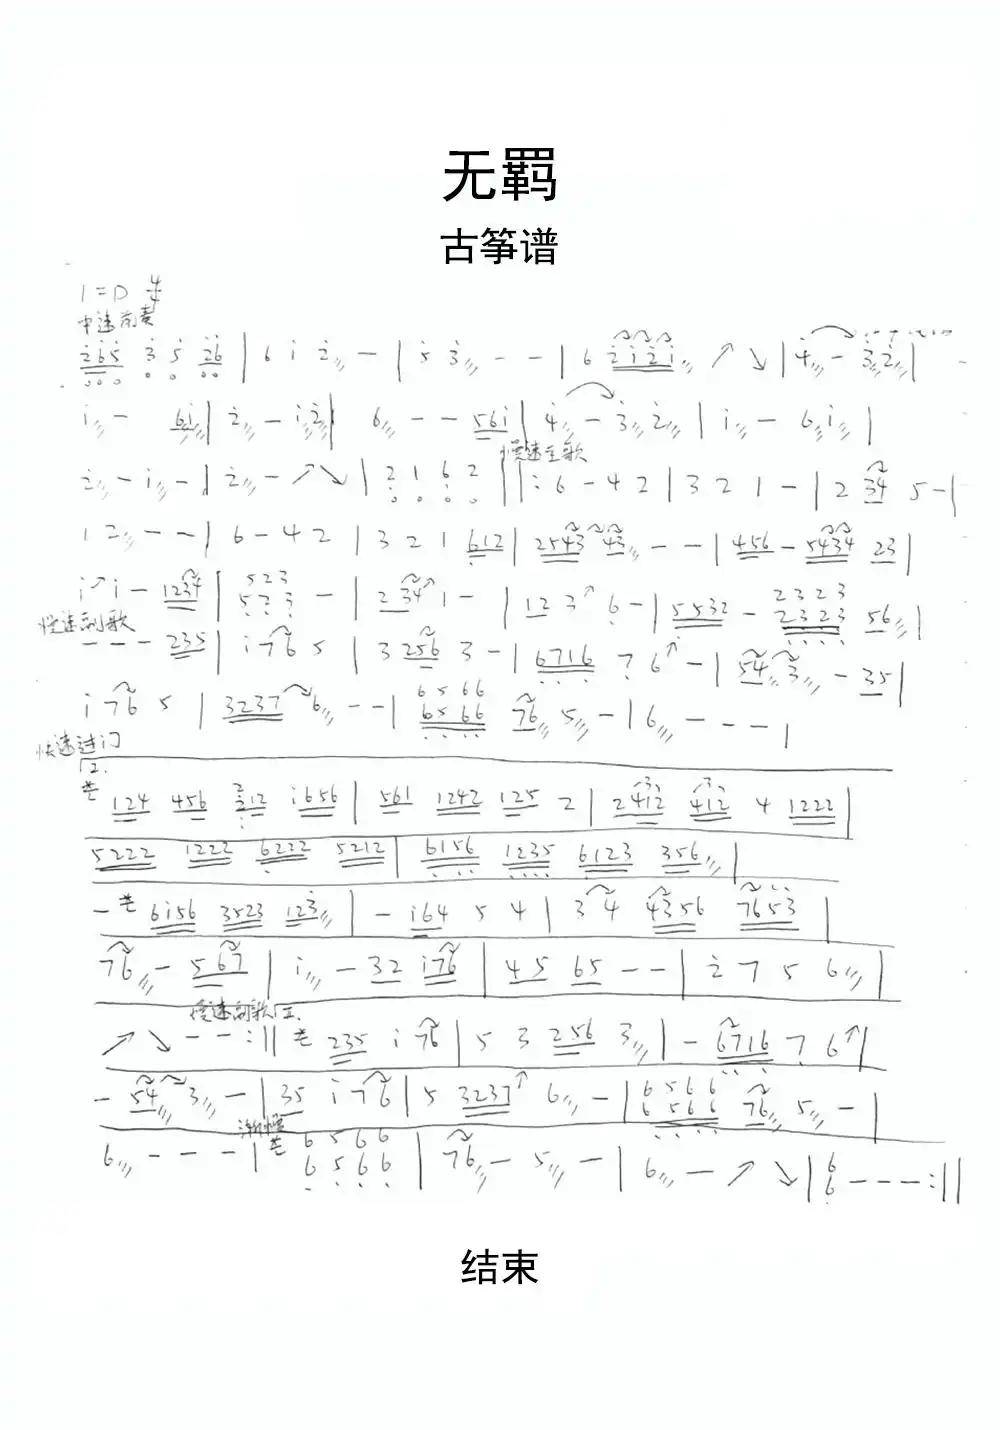 无羁
古筝谱
1=D 4/4
中速前奏
i̇65 3 5 26 | 6 i 2 – | 5 3 – – | 6 2i2i ↗ ↘ | 4 – 3 2 |
i – 6i | 2 – i2 | 6 – – 56i | 4 – 3 2 | i – 6 i |
慢速主歌
2 – i – | 2 – ↗ ↘ | 2 1 6 2 ‖: 6 – 4 2 | 3 2 1 – | 2 34 5 – |
1 2 – – | 6 – 4 2 | 3 2 1 612 | 2543 43 – – | 456 – 5434 23 |
i ↗ i – 1234 | 523 523 – | 2 34 ↗ 1 – | 12 3 ↗ 6 – | 5532 – 2323 2323 56 |
慢速副歌
– – – 235 | i 76 5 | 3 256 3 – | 6716 7 6 ↗ – | 54 3 – 35 |
i 76 5 | 3237 6 – – | 6566 6566 76 5 – | 6 – – – |
快速过门
2.
124 456 2212 i656 | 561 1242 125 2 | 2412 412 4 1222 |
5222 1222 6222 5212 | 6156 1235 6123 356 |
– 6i56 3523 123 | – i64 5 4 | 3 4 4356 7653 |
76 – 567 | i – 32 i76 | 45 65 – – | 2 7 5 6 |
慢速副歌II.
↗ ↘ – – :‖ 235 i 76 | 5 3 256 3 | – 6716 7 6 ↗ |
– 54 3 – | 35 i 76 | 5 3237 ↗ 6 – | 6566 6566 76 5 – |
渐慢
6 – – – | 6566 6566 | 76 – 5 – | 6 – ↗ ↘ | 6 6 – – – :‖
结束